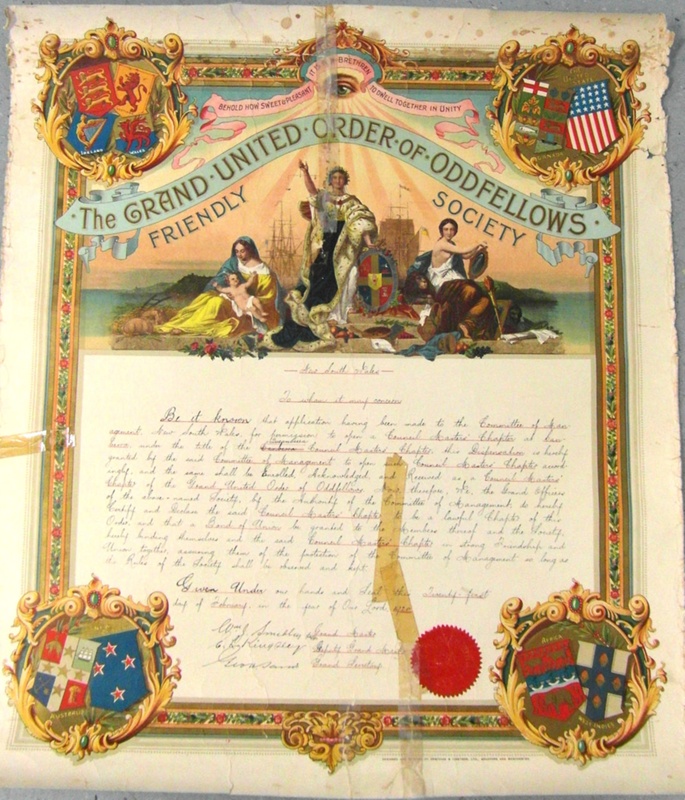 IT IS FOR BRETHREN
BEHOLD HOW SWEET & PLEASANT TO DWELL TOGETHER IN UNITY
The GRAND · UNITED · ORDER · OF · ODDFELLOWS ·
FRIENDLY SOCIETY
ENGLAND WALES
New South Wales
To whom it may concern
Be it known, that application having been made to the Committee of Man
agement New South Wales, for permission to open a Council Masters' Chapter at
under the title of the Council Masters Chapter, this Dispensation is hereby
granted by the said Committee of Management to open said Council Masters' Chapter accord
ingly, and the same shall be Enrolled, Acknowledged, and Received as a Council Masters'
Chapter of the Grand United Order of Oddfellows. Now therefore, We, the Grand Officers
of the above-named Society, by the Authority of the Committee of Management, do hereby
Certify and Declare the said Council Masters' Chapter to be a lawful Chapter of this
Order, and that a Bond of Union be granted to the Members thereof and the Society,
hereby binding themselves and the said Council Masters' Chapter in strong Friendship and
Union together, assuring them of the protection of the Committee of Management so long as
the Rules of the Society shall be observed and kept.
Given Under our hands and Seal this Twenty first
day of February in the year of Our Lord
Grand Master
Deputy Grand Master
Grand Secretary
AUSTRALIA